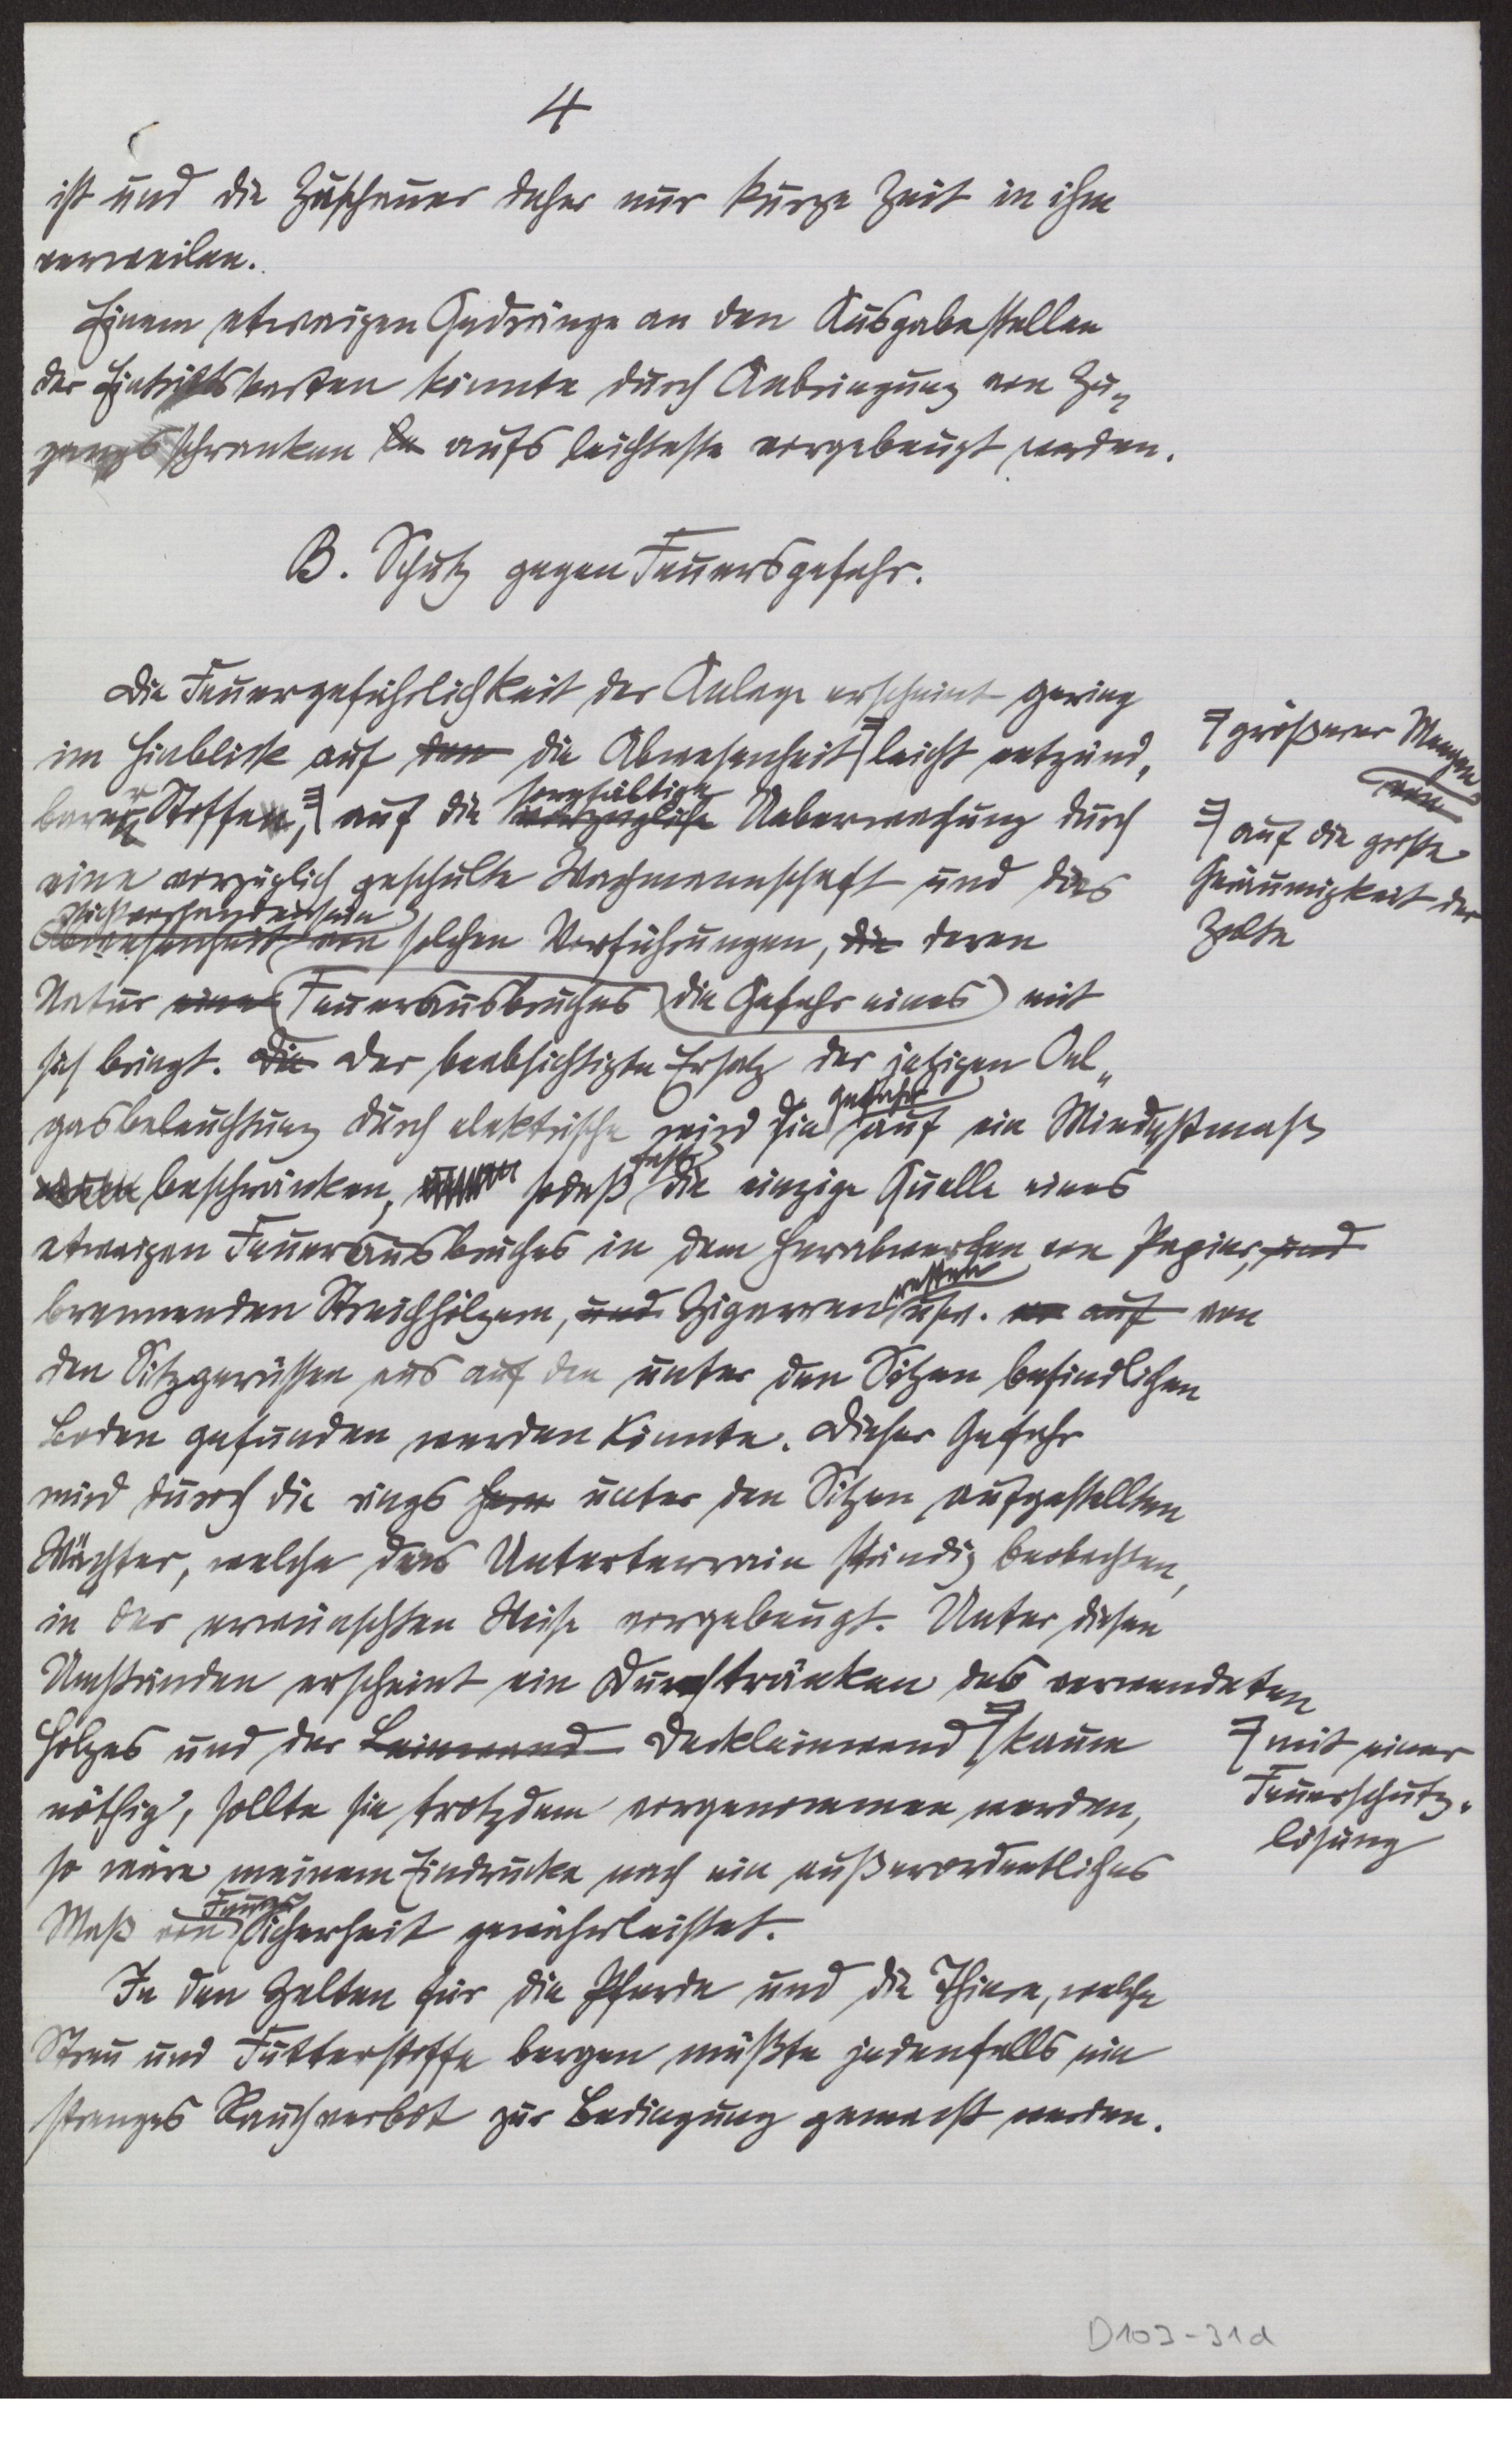 4
ist und die Zuschauer daher nur kurze Zeit in ihm
verweilen.
Einem etwaigen Gedränge an den Ausgabestellen
der Eintrittskarten könnte durch Anbringung von Zu-
gangsschranken aufs leichteste vorgebeugt werden.
B. Schutz gegen Feuersgefahr.
Die Feuergefährlichkeit der Anlage erscheint gering
im Hinblick auf den die Abwesenheit ⌉ leicht entzünd-
⌉ größerer Mengen
von
barer Stoffe, ⌉ auf die vorzügliche sorgfältige Ueberwachung durch
⌉ auf die große
Geräumigkeit der
Zelte
eine vorzüglich geschulte Wachmannschaft und das
Nichtvorhandensein
Abwesenheit von solchen Vorführungen, die deren
Natur eine Feuerausbruches die Gefahr eines mit
sich bringt. Die Der beabsichtigte Ersatz der jetzigen Oel-
gasbeleuchtung durch elektrische wird die Gefahr auf ein Mindestmaß
beschränken, sodaß fast die einzige Quelle eines
etwaigen Feuerausbruches in dem Herabwerfen von Papier, und
brennenden Streichhölzern, und Zigarrenresten usw. auf von
den Sitzgerüsten aus auf den unter den Sitzen befindlichen
Boden gefunden werden könnte. Dieser Gefahr
wird durch die rings unter den Sitzen aufgestellten
Wächter, welche das Unterterrain ständig beobachten,
in der erwünschten Weise vorgebeugt. Unter diesen
Umständen erscheint ein Durchtränken des verwendeten
Holzes und der Leinwand Deckleinwand ⌉ kaum
⌉ mit einer
Feuerschutz-
lösung
nöthig, sollte sie trotzdem vorgenommen werden,
so wäre meinem Eindrucke nach ein außerordentliches
Maß von Feuersicherheit gewährleistet.
In den Zelten für die Pferde und die Thiere, welche
Streu und Futterstoffe bergen müßte jedenfalls ein
strenges Rauchverbot zur Bedingung gemacht werden.
D103-31d